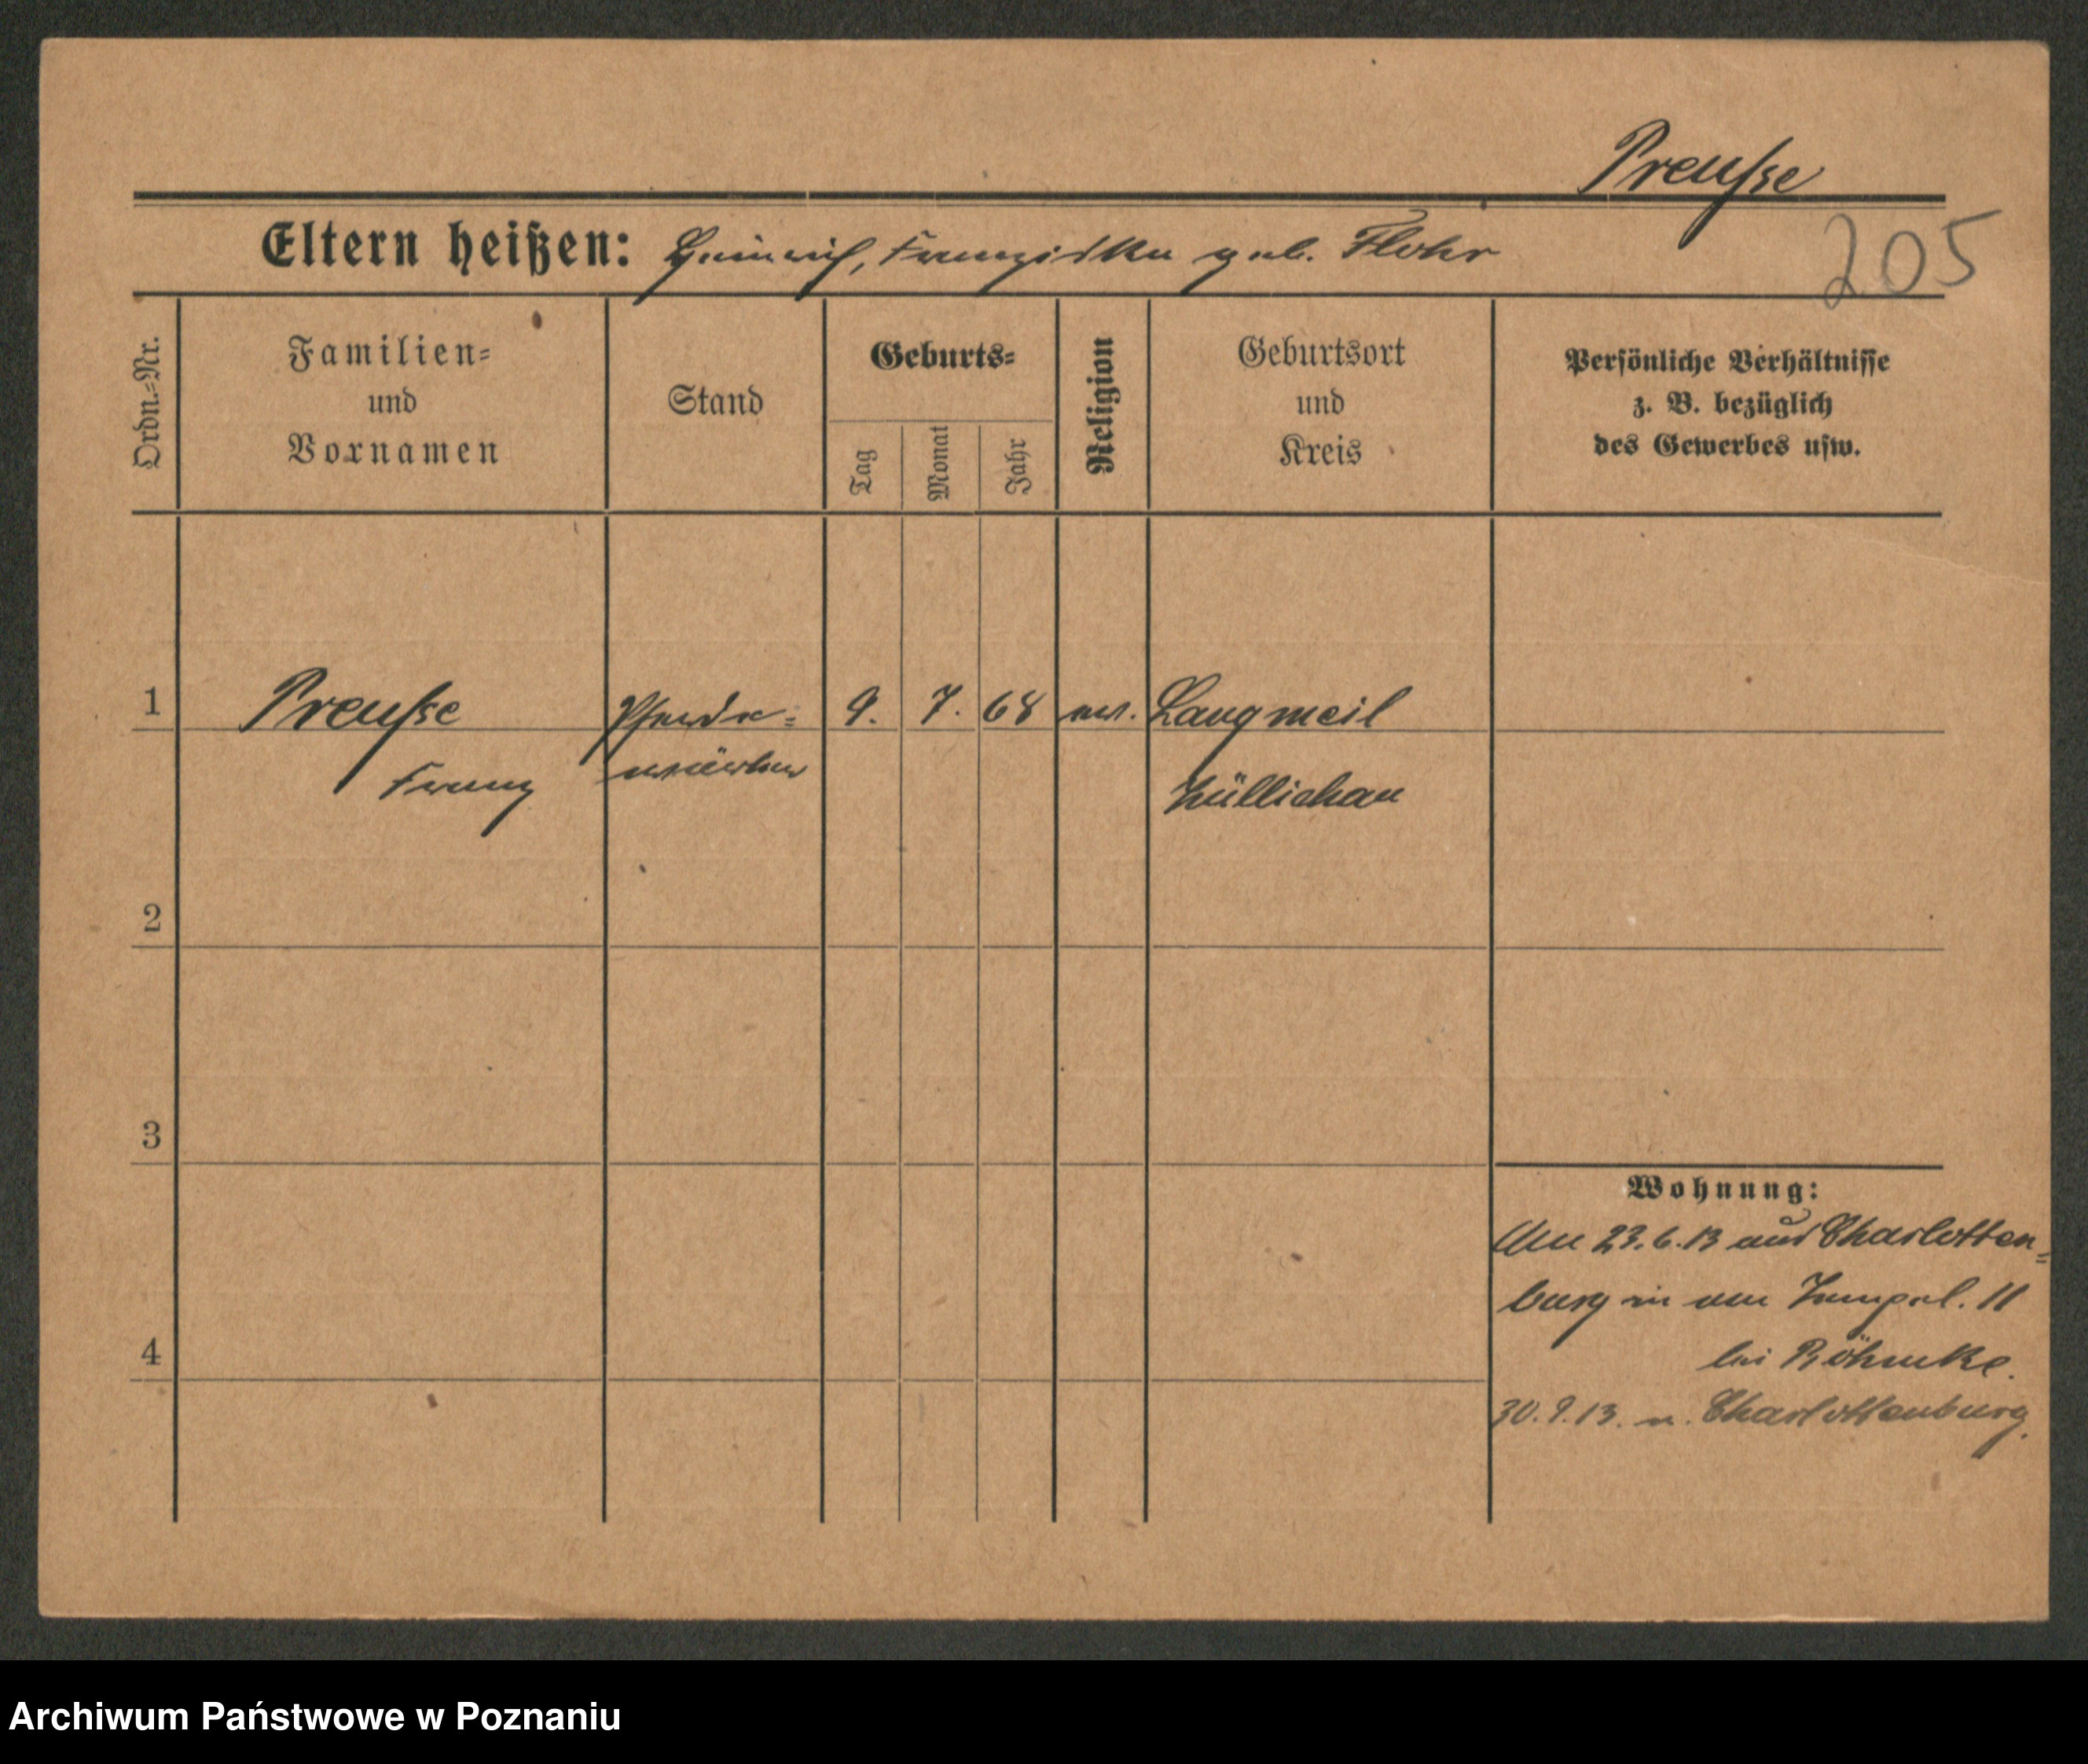 Preuße
205
Eltern heißen: Heinrich, Franziska geb. Flohr
Ordn.-Nr.
Familien-
und
Vornamen
Stand
Geburts-
Tag
Monat
Jahr
Religion
Geburtsort
und
Kreis
Persönliche Verhältnisse
z. B. bezüglich
des Gewerbes usw.
1 Preuße Pferde- 9. 7. 68 ev. Langmeil
Franz wärter Züllichau
2
3
4
Wohnung:
Am 23.6.13 aus Charlotten-
burg in am 11
bei Böhmke.
30.9.13. n. Charlottenburg.
Archiwum Państwowe w Poznaniu